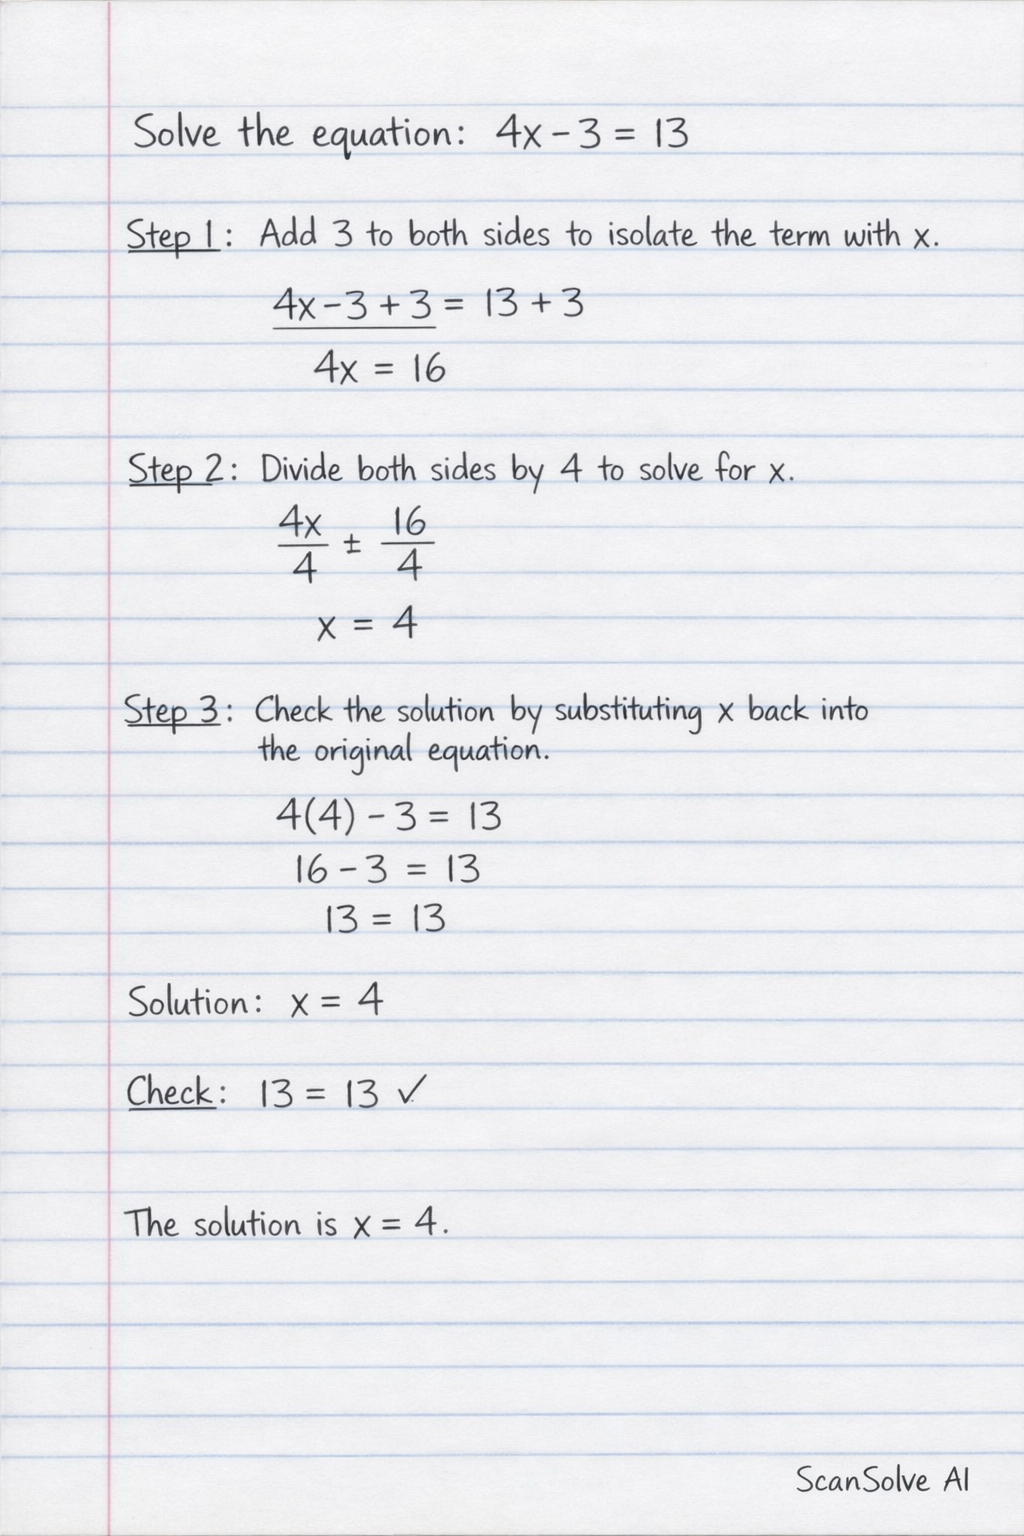 Solve the equation: 4x - 3 = 13
Step 1: Add 3 to both sides to isolate the term with x.
4x - 3 + 3 = 13 + 3
4x = 16
Step 2: Divide both sides by 4 to solve for x.
4x/4 ± 16/4
x = 4
Step 3: Check the solution by substituting x back into
the original equation.
4(4) - 3 = 13
16 - 3 = 13
13 = 13
Solution: x = 4
Check: 13 = 13 ✓
The solution is x = 4.
ScanSolve AI